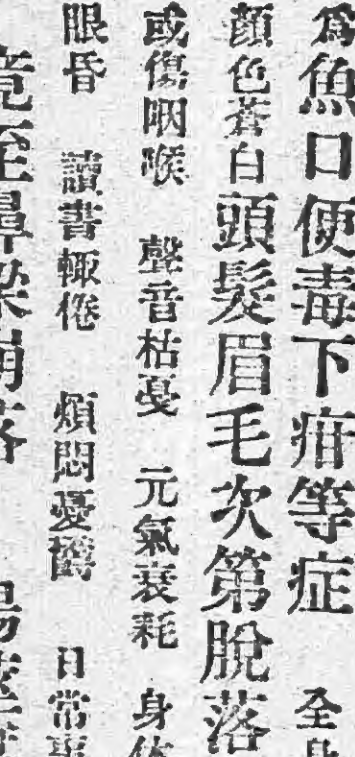 爲魚口便毒下疳等症 全身
顏色蒼白頭髮眉毛次第脫落
或傷咽喉 聲音枯戞 元氣衰耗 身体
眼昏 讀書輙倦 煩悶憂鬱 日常事
竟至鼻梁崩落